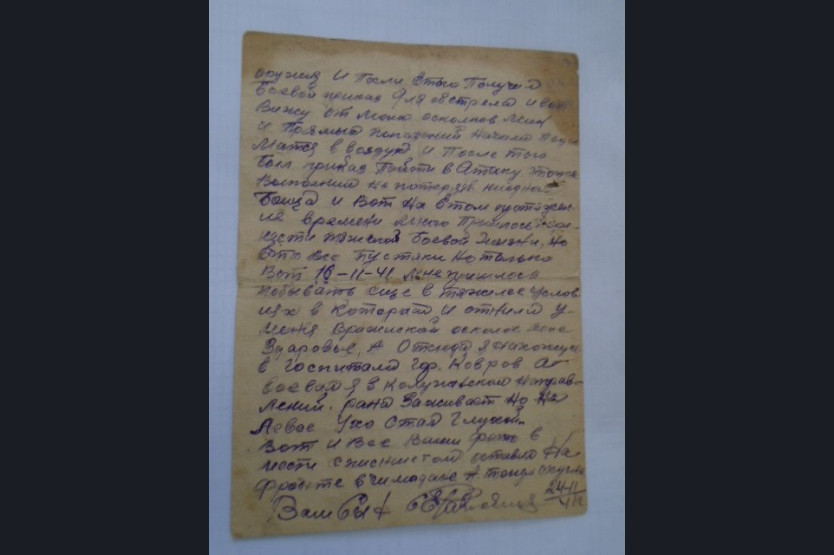 оружия и После Этого Получил
боевой приказ Для обстрела и вот
Вижу от моих осколков мин
и Прямых попаданий начали
маться в воздух и После того
был приказ Пойти в Атаку тоже
Выполнил не потеряв ниодной
Бойца и Вот На Этом
ие времени много Пришлось
нести тяжелой боевой жизни, но
Это все Пустяки но только
Вот 16-11-41 мне пришлося
побывать еще в тяжелое услов
иях в которых и отнила у
меня вражиской осколок мина
Здаровье, А Отсюда я нахожусь
в госпитали гор. Ковров а
воевал я в Калужском направ-
лений. рана Заживает но На
Левае Ухо Стал Глухой.
Вот и Все Ваши фото в
мести с оставил На
фронте в чимадане А
Ваш Сын
24-11
41 г